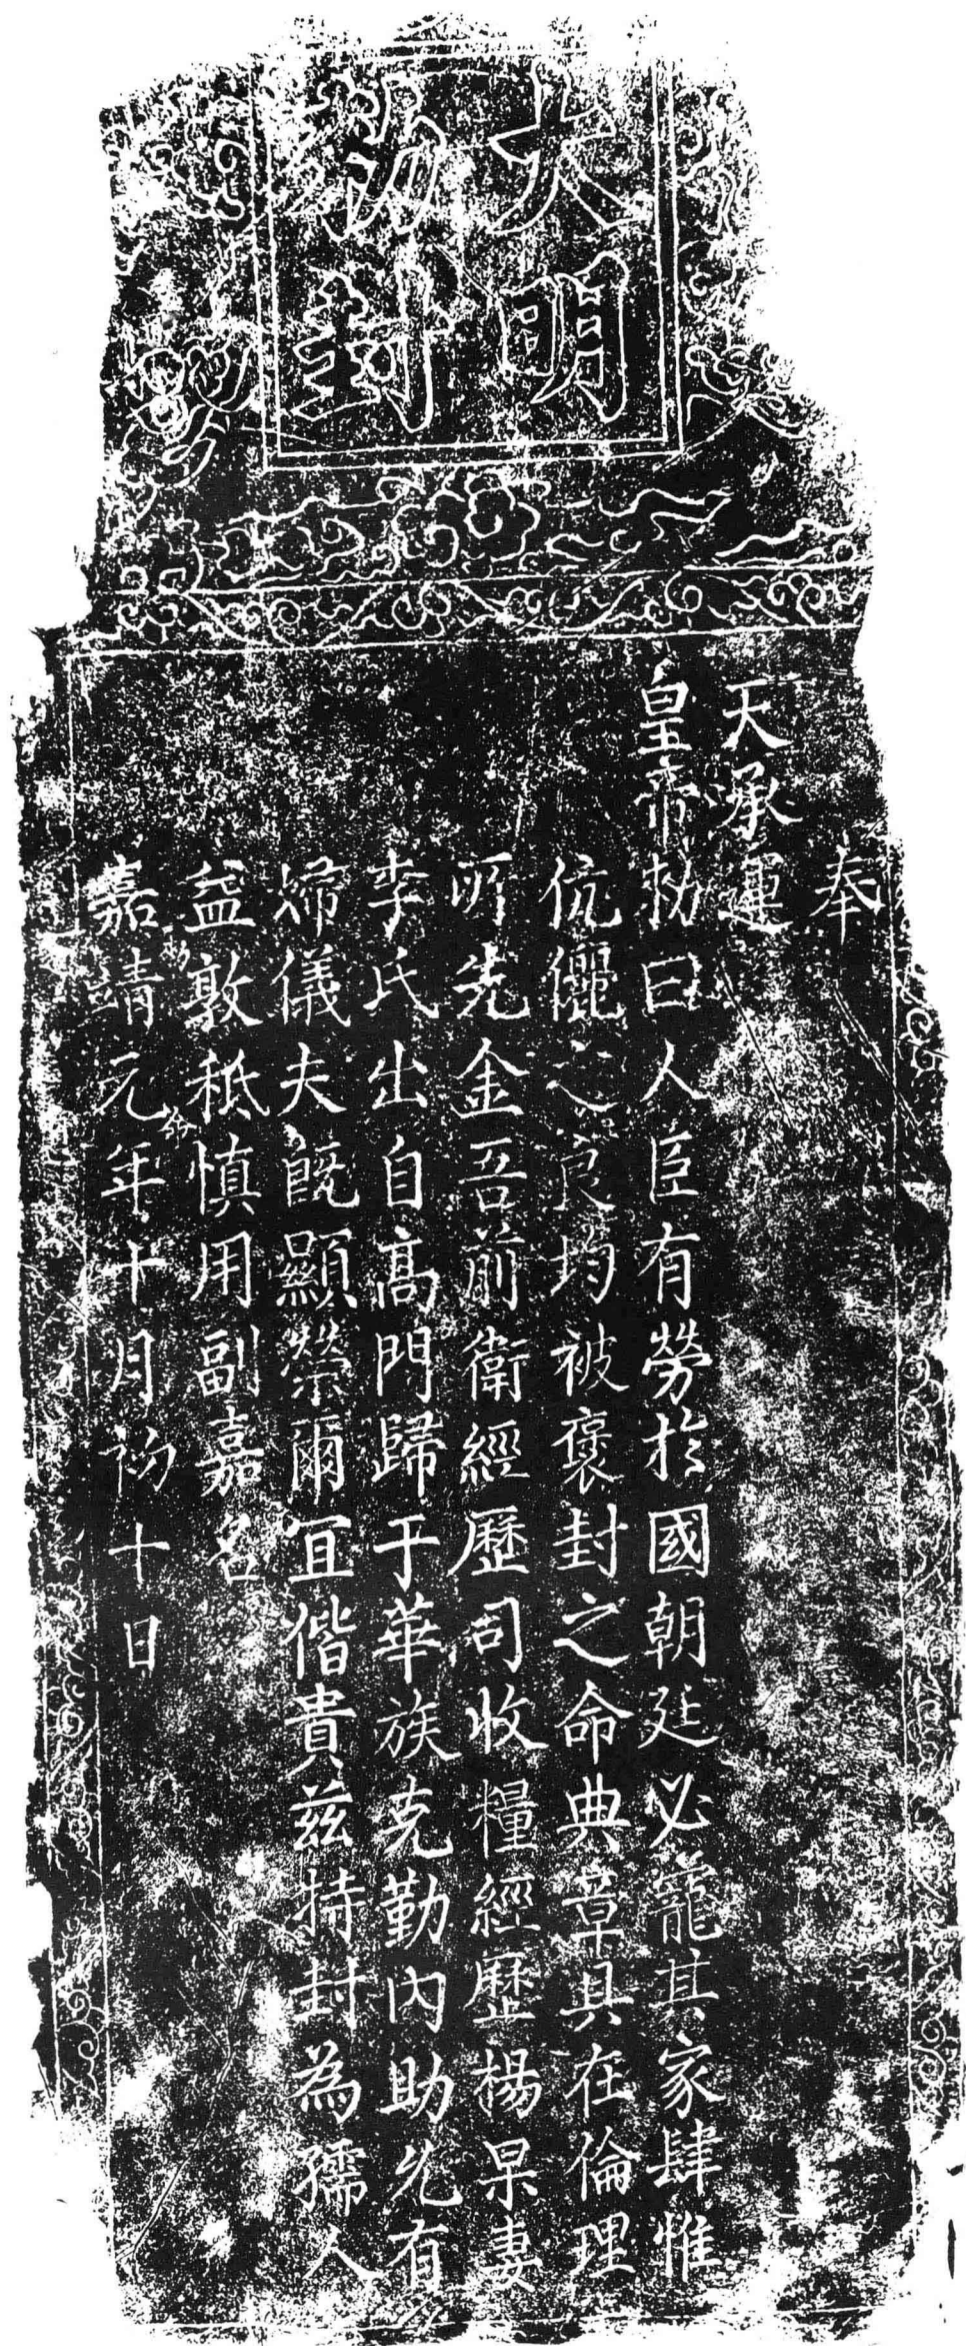 大明
勑封
奉
天承運
皇帝勑曰人臣有勞於國朝廷必寵其家肆惟
伉儷之良均被褒封之命典章具在倫理
所先金吾前衛經歷司收糧經歷楊杲妻
李氏出自高門歸于華族克勤內助允有
婦儀夫既顯榮爾宜偕貴茲特封為孺人
益敦祗慎用副嘉名
嘉靖元年十月初十日